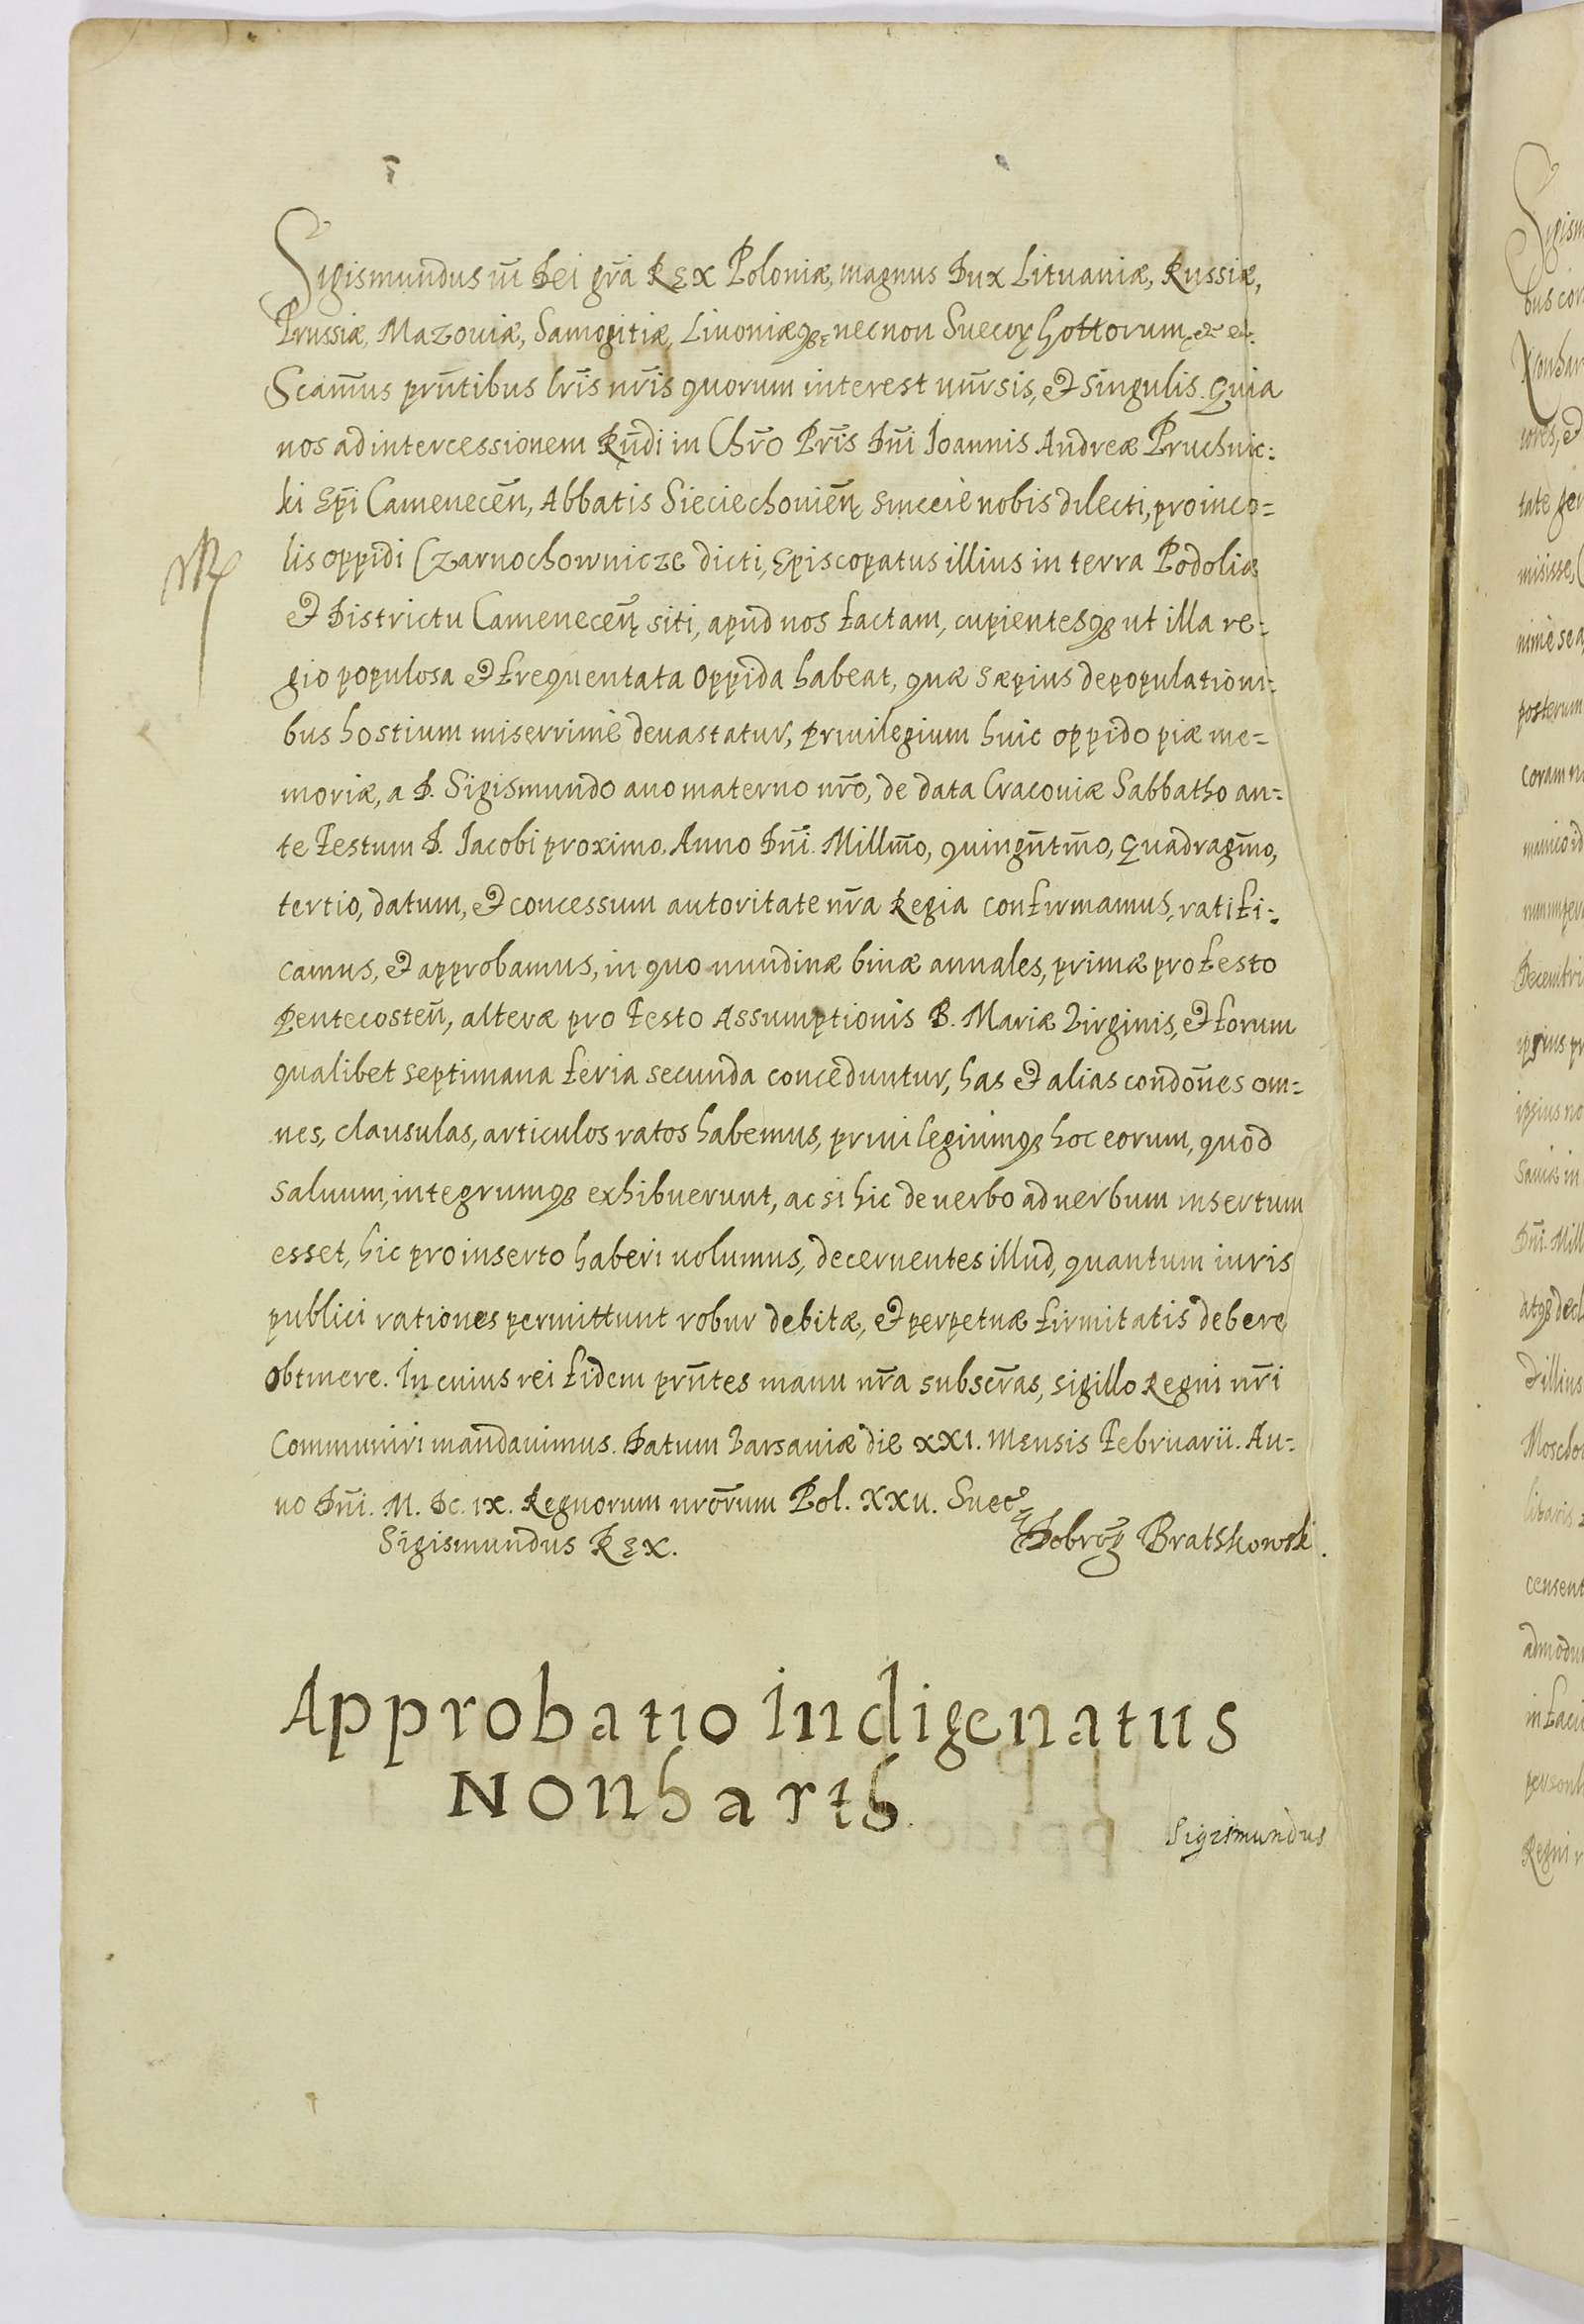 Sigismundus iii Dei gr̃a Rex Poloniæ, magnus Dux Lituaniæ, Russiæ,
Prussiæ, Mazouiæ, Samogitiæ, Liuoniæqȝ necnon Suecoꝝ hottorum,
Scam̃us prñtibus lr̃is nr̃is quorum interest uñrsis, et singulis. Quia
nos ad intercessionem Rñdi in Chr̃o Pr̃is Dñi Ioannis Andreæ Pruchnic=
ki Ep̃i Camenecẽn, Abbatis Sieciechouiẽn, sincere nobis dilecti, pro inco=
lis oppidi Czarnochownicze dicti, Episcopatus illius in terra Podoliæ
et Districtu Camenecẽn siti, apud nos factam, cupientesqȝ ut illa re=
gio populosa et frequentata oppida habeat, quæ sæpius depopulationi=
bus hostium miserrimè deuastatur, priuilegium huic oppido piæ me=
moriæ, a D. Sigismundo auo materno nr̃o, de data Cracouiæ Sabbatho an=
te Festum D. Iacobi proximo. Anno Dñi. Millm̃o, quingñtm̃o, Quadragm̃o,
tertio, datum, et concessum autoritate nr̃a Regia confirmamus, ratifi=
camus, et approbamus, in quo nundinæ binæ annales, primæ pro festo
Pentecosteñ, alteræ pro Festo Assumptionis B. Mariæ Virginis, et forum
qualibet septimana feria secunda conceduntur, has et alias condoñes om=
nes, clausulas, articulos ratos habemus, priuilegiumqȝ hoc eorum, quod
saluum, integrumqȝ exhibuerunt, ac si hic de uerbo ad uerbum insertum
esset, hic pro inserto haberi uolumus, decernentes illud, quantum iuris
publici rationes permittunt robur debitæ, et perpetuæ firmitatis debere
obtinere. In cuius rei fidem prñtes manu nr̃a subscr̃as, sigillo Regni nr̃i
Communiri mandauimus. Datum Varsauiæ die XXI. Mensis Februarii. An=
no Dñi. M. Dc. ix. Regnorum nrõrum Pol. XXII. Suec
Sigismundus Rex. Bratskowski.
Approbatio Indigenatus
Nonharth.
Sigismundus